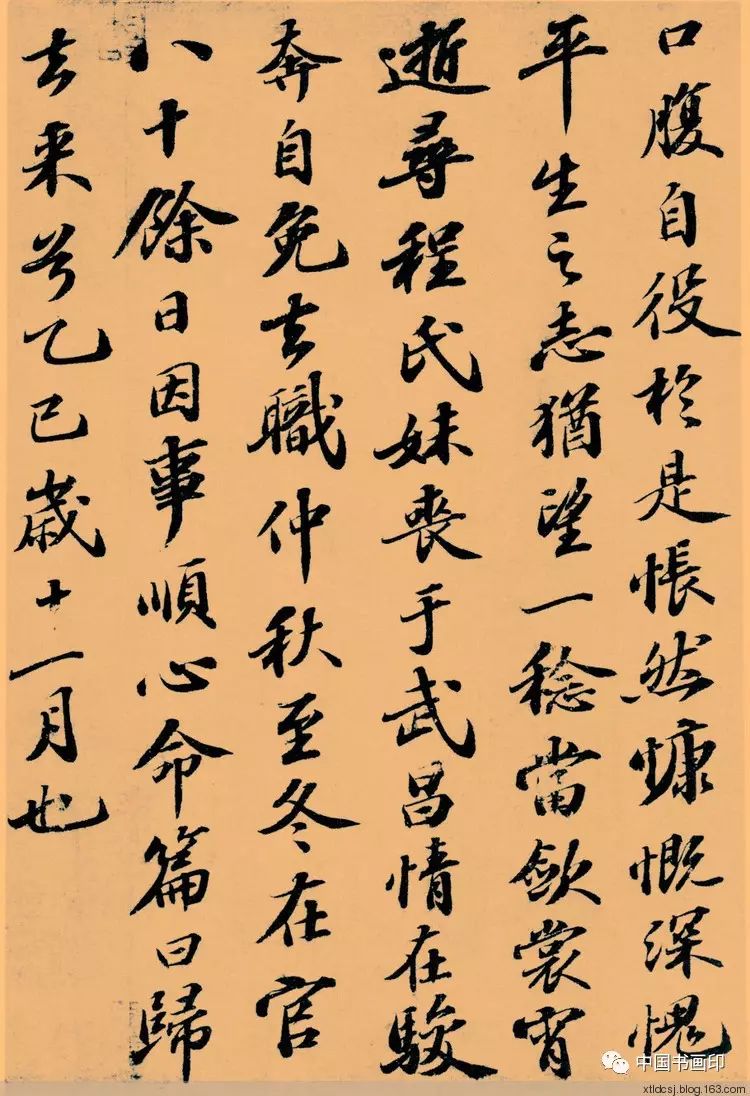 口腹自役於是悵然慷慨深愧
平生之志猶望一稔當斂裳宵
逝尋程氏妹喪于武昌情在駿
奔自免去職仲秋至冬在官
八十餘日因事順心命篇曰歸
去来兮乙巳歲十一月也
中国书画印
xtldcsj.blog.163.com